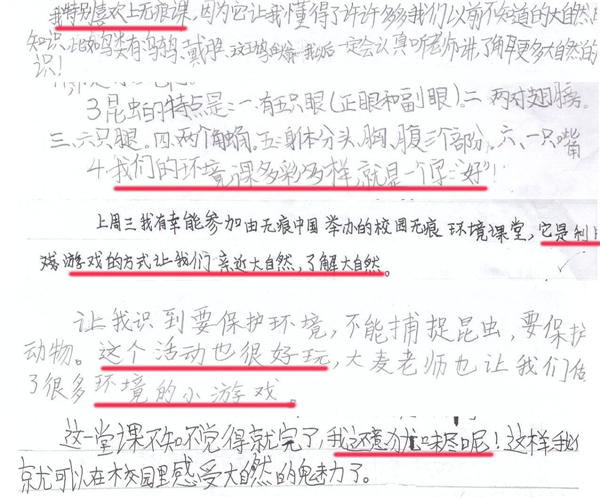 我特别喜欢上无痕课,因为它让我懂得了许许多多我们以前不知道的大自然
知识,比如鸟类有
识!
3.昆虫的特点是:一.有五只眼(正眼和副眼)。二.两对翅膀。
三.六只腿。四.两个角触角。五.身体分头、胸、腹三个部分。六、一只嘴
4.我们的环境课多彩多样,就是一个字:“好”!
上周三我有幸能参加由无痕中国举办的校园无痕环境课堂,它是利
戏游戏的方式让我们亲近大自然,了解大自然。
让我识到要保护环境,不能捕捉昆虫,要保护
动物。这个活动也很好玩,大麦老师也让我们做
了很多环境的小游戏。
这一堂课不知不觉得就完了,我还意犹味尽呢!这样我们
就可以在校园里感受大自然的鬼魅力了。